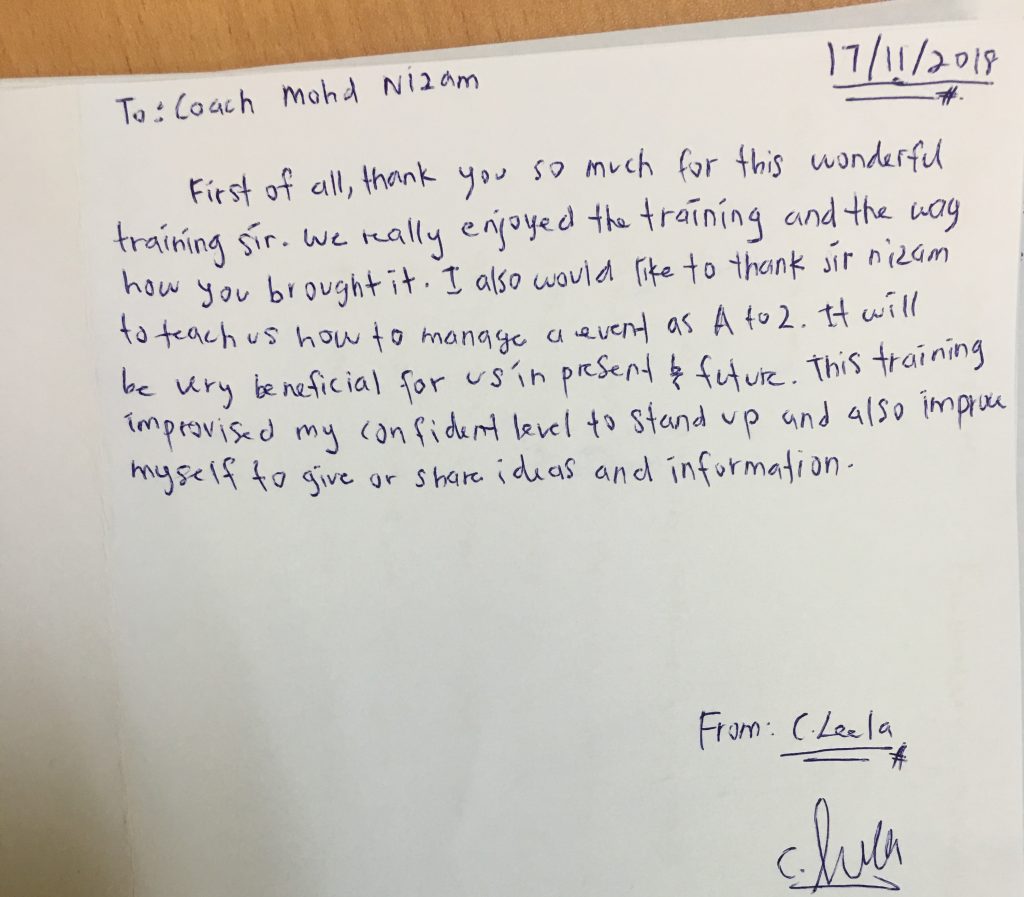 17/11/2018
To: Coach Mohd Nizam
First of all, thank you so much for this wonderful
training sir. We really enjoyed the training and the way
how you brought it. I also would like to thank sir nizam
to teach us how to manage a event as A to Z. It will
be very beneficial for us in present & future. This training
improvised my confident level to stand up and also improve
myself to give or share ideas and information.
From: C.Leela
C. Leela